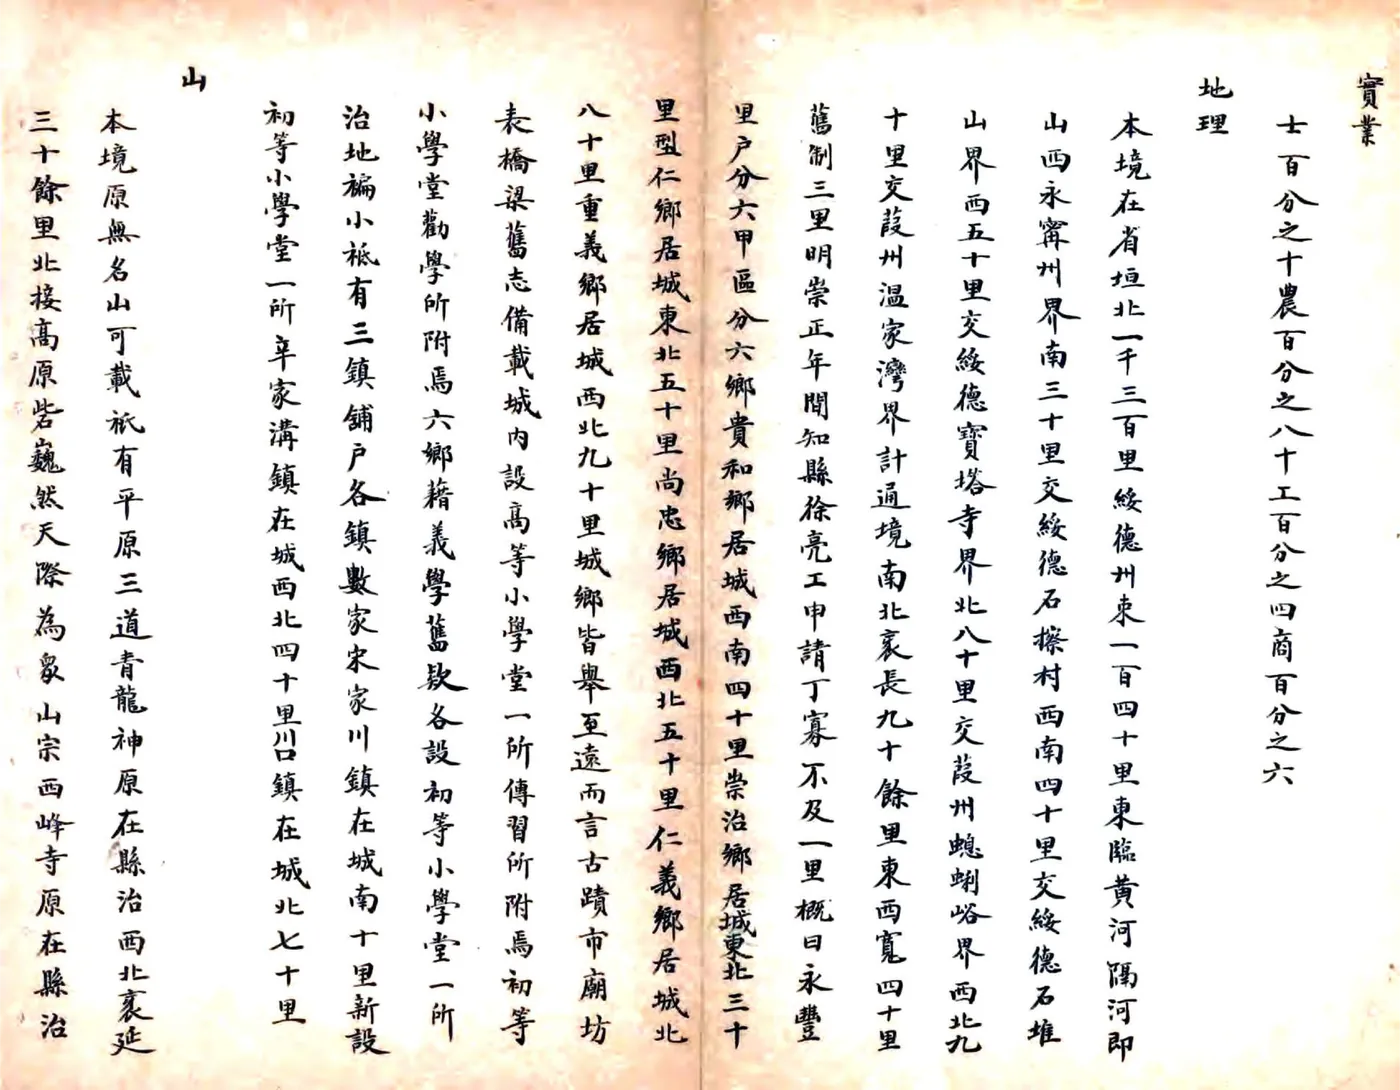 實業
士百分之十農百分之八十工百分之四商百分之六
地理
本境在省垣北一千三百里綏德州東一百四十里東臨黃河隔河即
山西永甯州界南三十里交綏德石擦村西南四十里交綏德石堆
山界西五十里交綏德寶塔寺界北八十里交葭州螅蜊峪界西北九
十里交葭州溫家灣界計通境南北袤長九十餘里東西寬四十里
舊制三里明崇正年間知縣徐亮工申請丁寡不及一里概曰永豐
里戶分六甲區分六鄉貴和鄉居城西南四十里崇治鄉居城東北三十
里型仁鄉居城東北五十里尚忠鄉居城西北五十里仁義鄉居城北
八十里重義鄉居城西北九十里城鄉皆舉至遠而言古蹟市廟坊
表橋梁舊志備載城內設高等小學堂一所傳習所附焉初等
小學堂勸學所附焉六鄉藉義學舊欵各設初等小學堂一所
治地褊小祗有三鎮舖戶各鎮數家宋家川鎮在城南十里新設
初等小學堂一所辛家溝鎮在城西北四十里川口鎮在城北七十里
山
本境原無名山可載祇有平原三道青龍神原在縣治西北袤延
三十餘里北接高原砦巍然天際為眾山宗西峰寺原在縣治